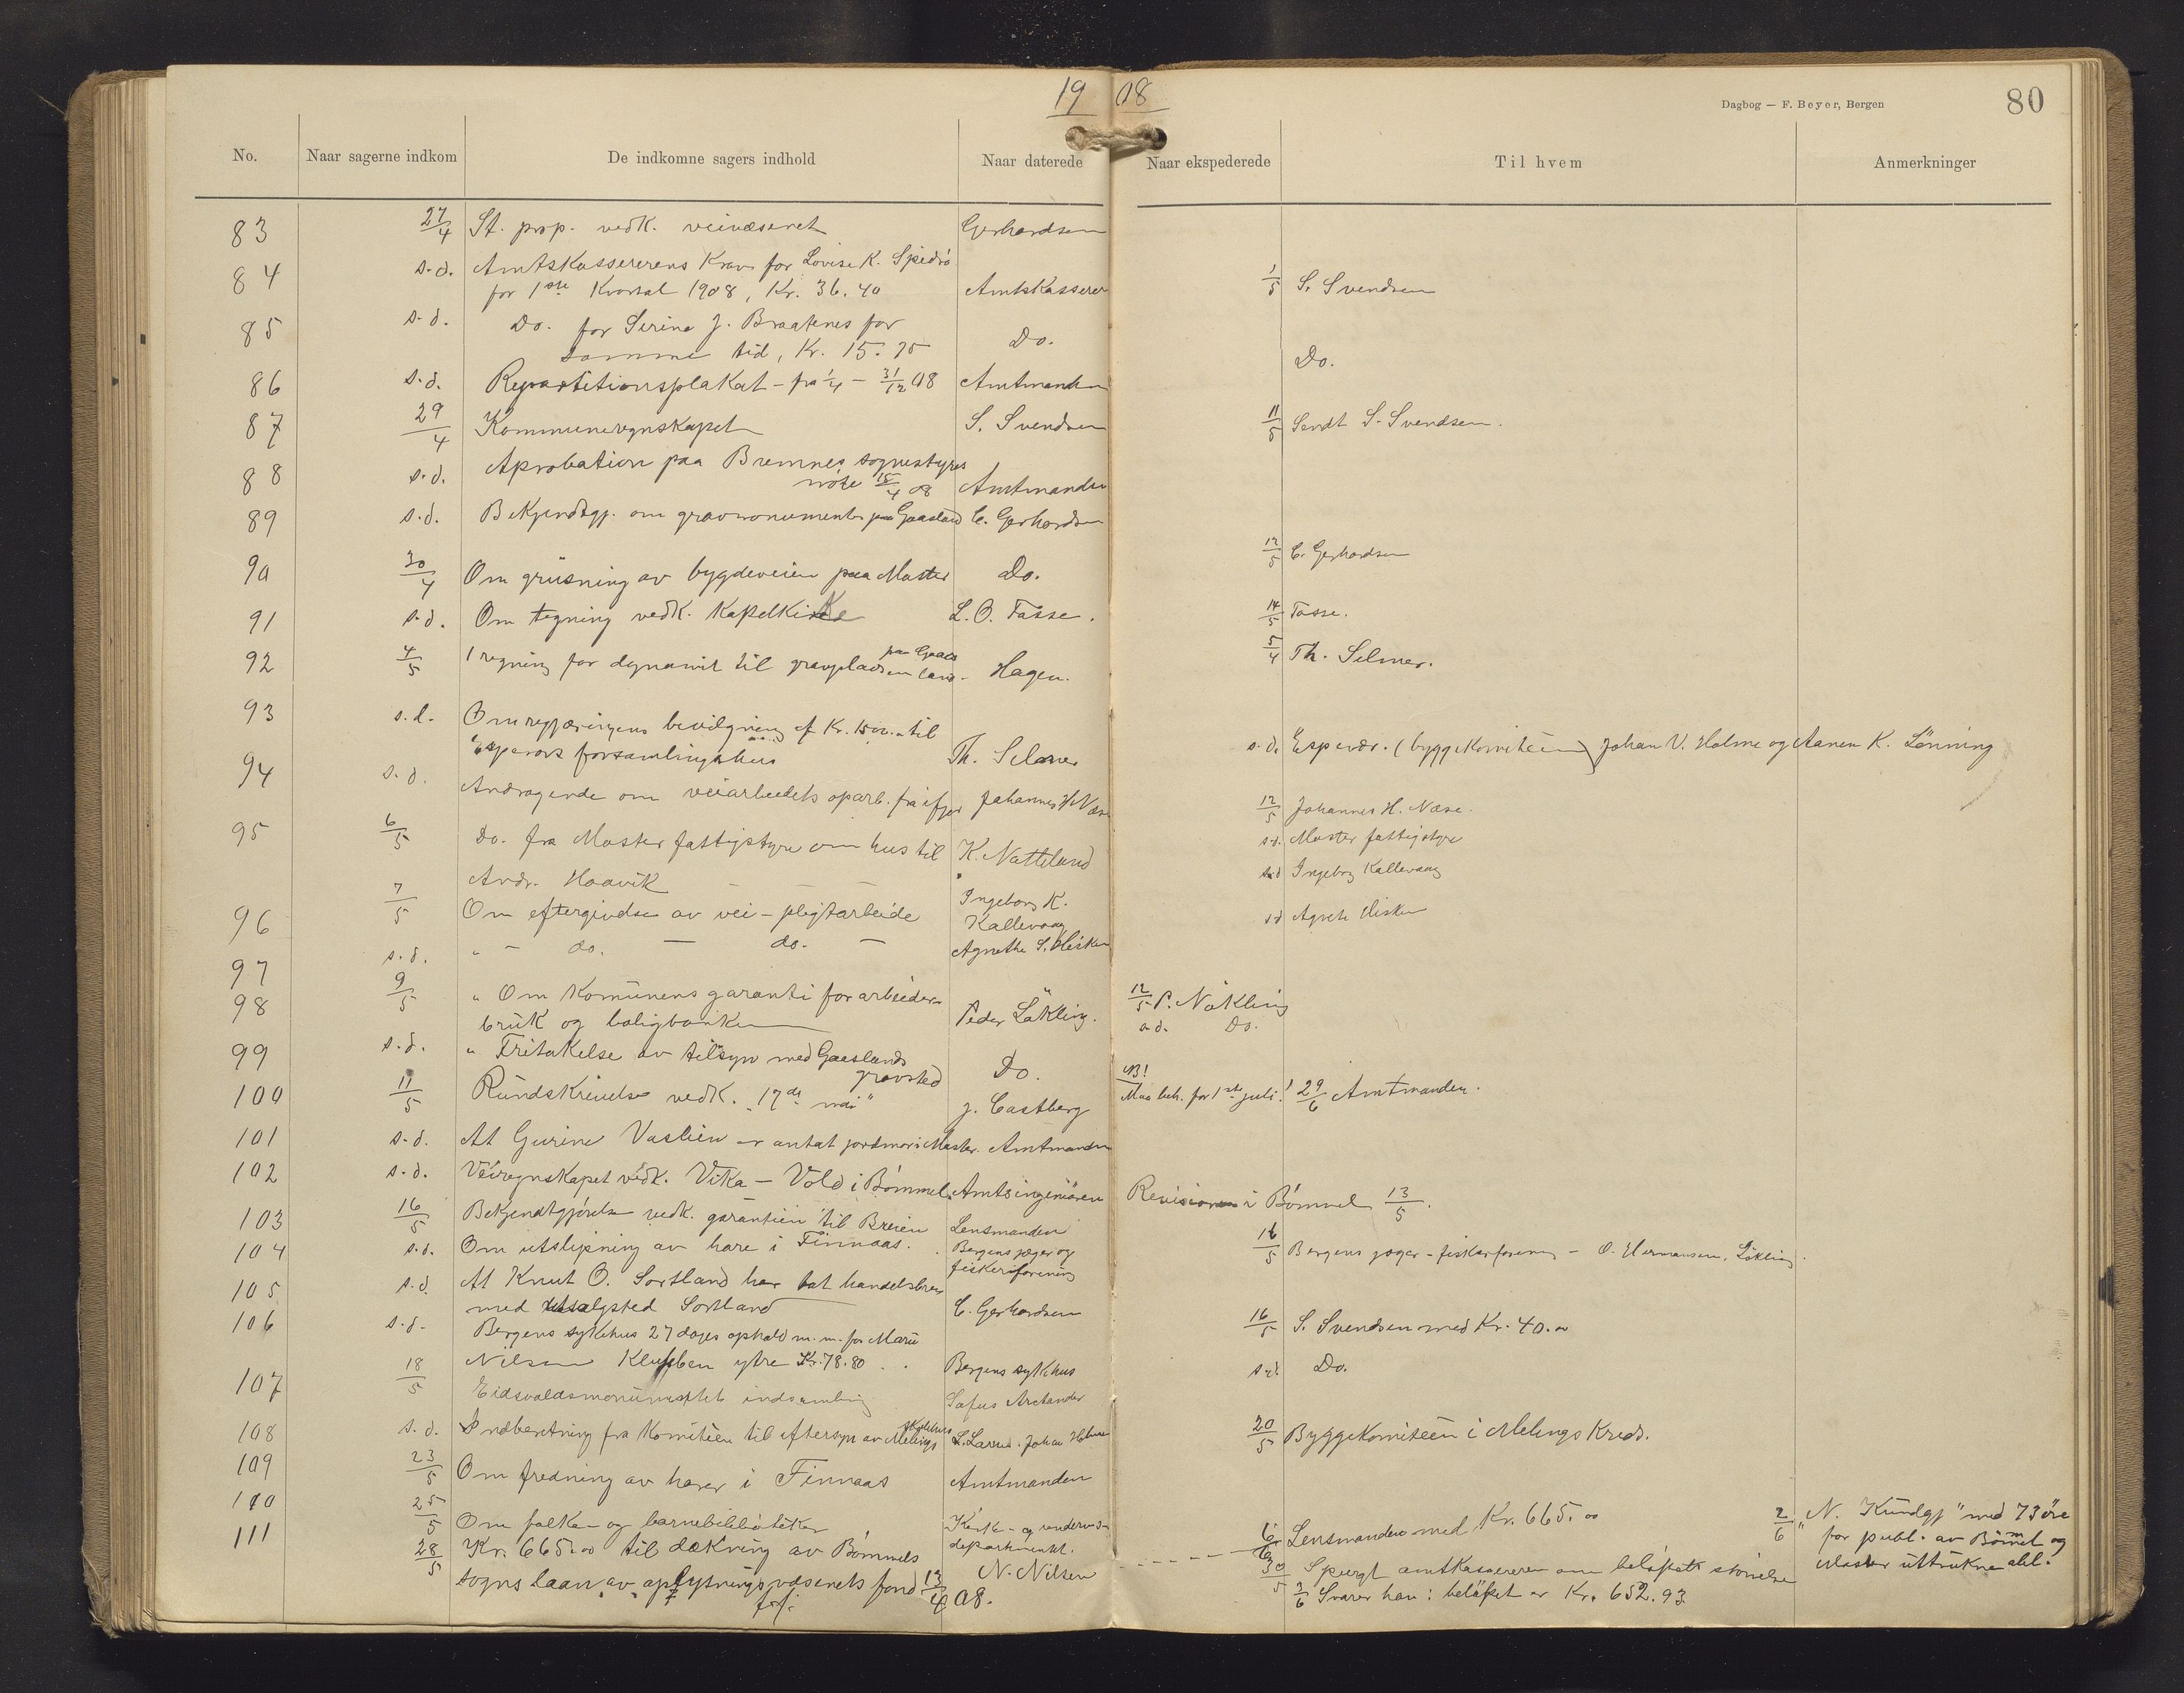 19 08
Dagbog — F. Beyer, Bergen
80
No. Naar sagerne indkom De indkomne sagers indhold Naar daterede Naar ekspederede Til hvem Anmerkninger
83 27/4 St. prop. vedk. veivæsenet Gerhardsen
84 s.d. Amtskassererens Krav for Lovise K. Spidsö
for 1ste Kvartal 1908, Kr. 36.40 Amtskasserer 1/5 S. Svendsen
85 s.d. Do. for Serine J. Braatenes for
samme tid, Kr. 15.75 Do. Do.
86 s.d. Repartitionsplakat - fra 1/4 - 31/12 08 Amtmanden
87 29/4 Kommuneregnskapet S. Svendsen 11/5 Sendt S. Svendsen.
88 s.d. Aprobation paa Bremnes sognestyres
möte 15/4 08 Amtmanden
89 s.d. Bekjendtgj. om gravmonumenter paa Gaasland C. Gerhardsen
90 30/4 Om grusning av bygdeveien paa Moster Do. 12/5 C. Gerhardsen
91 s.d. Om tegning vedk. Kapelkirke L. O. Tasse. 14/5 Tasse.
92 4/5 1 regning for dynamit til gravpladsen paa Gaasland - Hagen. 5/4 Th. Selmer.
93 s.d. Om regjæringens bevilgning af Kr. 1500.- til
Espeværs forsamlingshus Th. Selmer s.d. Espevær. (byggekomiteen) Johan V. Holme og Aanen K. Lönning
94 s.d. Andragende om veiarbeidets oparb. fra ifjor Johannes H. Næse 12/5 Johannes H. Næse.
95 6/5 Do. fra Moster fattigstyre om hus til K. Natteland s.d. Moster fattigstyre
Andr. Haavik
96 7/5 Om eftergivelse av vei-pligtarbeide Ingeborg K. Kallevaag s.d. Ingeborg Kallevaag
97 s.d. " - do. - do. - Agnethe S. Hisken s.d. Agnete Hisken
98 9/5 " Om Komunens garanti for arbeider-
bruk og boligbanken Peder Lökling. 12/5 P. Nökling
99 s.d. " Fritakelse av tilsyn med Gaaslands
gravsted Do. s.d. Do.
100 11/5 Rundskrivelse vedk. "17de mai" J. Castberg NB! Maa beh. før 1ste juli! 29/6 Amtmanden.
101 s.d. At Gurine Vaslien er antat jordmor i Moster. Amtmanden
102 s.d. Veiregnskapet vedk. Vika - Vold i Bömmel. Amtsingeniören Revisionen i Bömmel 13/5.
103 16/5 Bekjendtgjörelse vedk. garantien til Breien Lensmanden
104 s.d. Om utslipning av hare i Finnaas. Bergens jæger og fiskeriforening 16/5 Bergens jæger-fiskerforening - O. Hermansen, Lökling.
105 s.d. At Knut O. Sortland har tat handelsbrev
med utsalgsted Sortland C. Gerhardsen
106 s.d. Bergens sykehus 27 dages ophold m.m. for Marie
Nilsen Klubben ytre Kr. 78.80 Bergens sykehus 16/5 S. Svendsen med Kr. 40.00
107 18/5 Eidsvoldsmonumentets indsamling Sofus Arctander s.d. Do.
108 s.d. Indberetning fra Komitéen til eftersyn av Melings skolehus L. Larsen. Johan Holme 20/5 Byggekomiteen i Melings Kreds.
109 23/5 Om fredning av harer i Finnaas Amtmanden
110 25/5 Om folke- og barnebiblioteker Kirke- og underv.-departementet.
111 28/5 Kr. 665.00 til dækning av Bömmels
sogns laan av oplysningsvæsenets fond 13/4 08. N. Nilsen
Lensmanden med Kr. 665.00
30/5 Spurgt amtkassereren om beløpets störrelse
3/6 Svarer han: beløpet er Kr. 652.93
2/6 "N. Kundgj" med 73 öre
for publ. av Bömmel og
Moster uttrukne